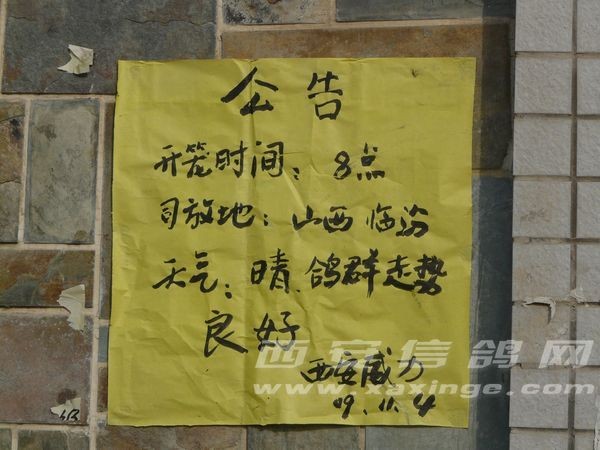 公告
开笼时间：8点
司放地：山西临汾
天气：晴.鸽群走势
良好
西安威力
09.11.4
西安信鸽网
www.xaxinge.com